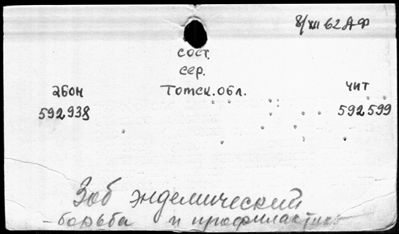 8/XII 62 АФ
сост.
сер.
абон Томск.обл. чит
592938 592599
Зоб эндемический
- борьба и профилактика